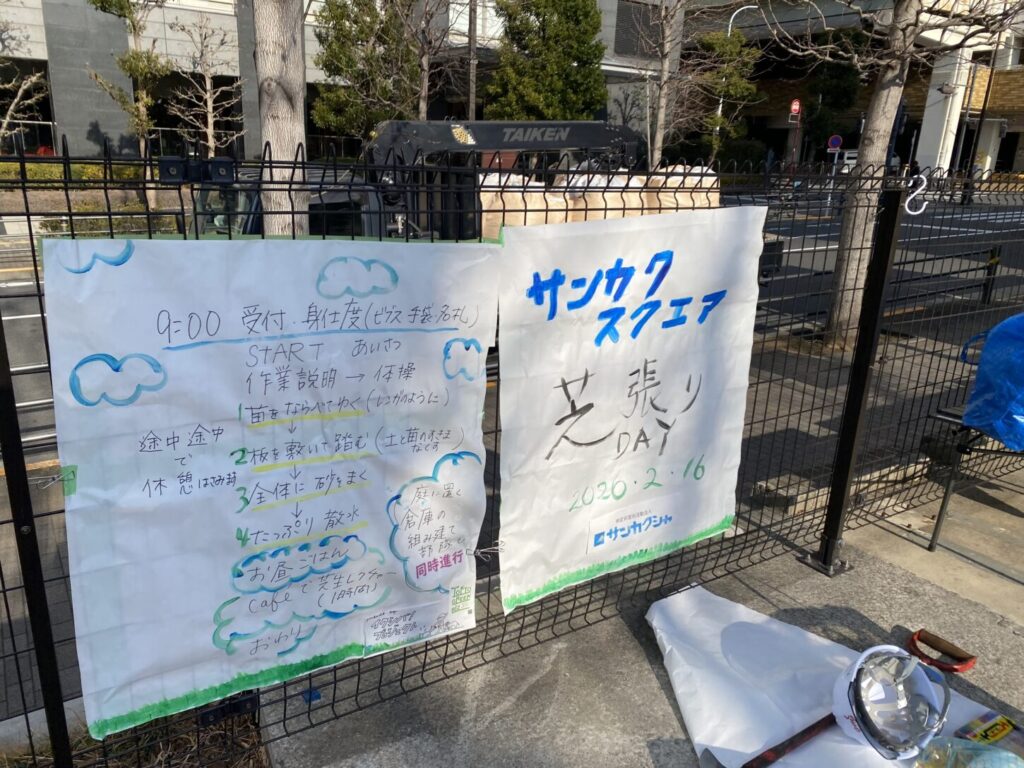 TAIKEN
9:00 受付・身仕度(ビブス 手袋 名札)
START あいさつ
作業説明→体操
1 苗をならべてゆく(レンガのように)
2 板を敷いて踏む(土と苗の
なくす)
3 全体に 砂をまく
4 たっぷり 散水
お昼ごはん
Cafeで芝生レクチャー
(1時間)
おわり
途中途中
で
休憩はさみます
庭に置く
倉庫の
組み建て
部隊と
同時進行
サンカク
スクエア
芝張り
DAY
2020・2・16
サンカクシャ